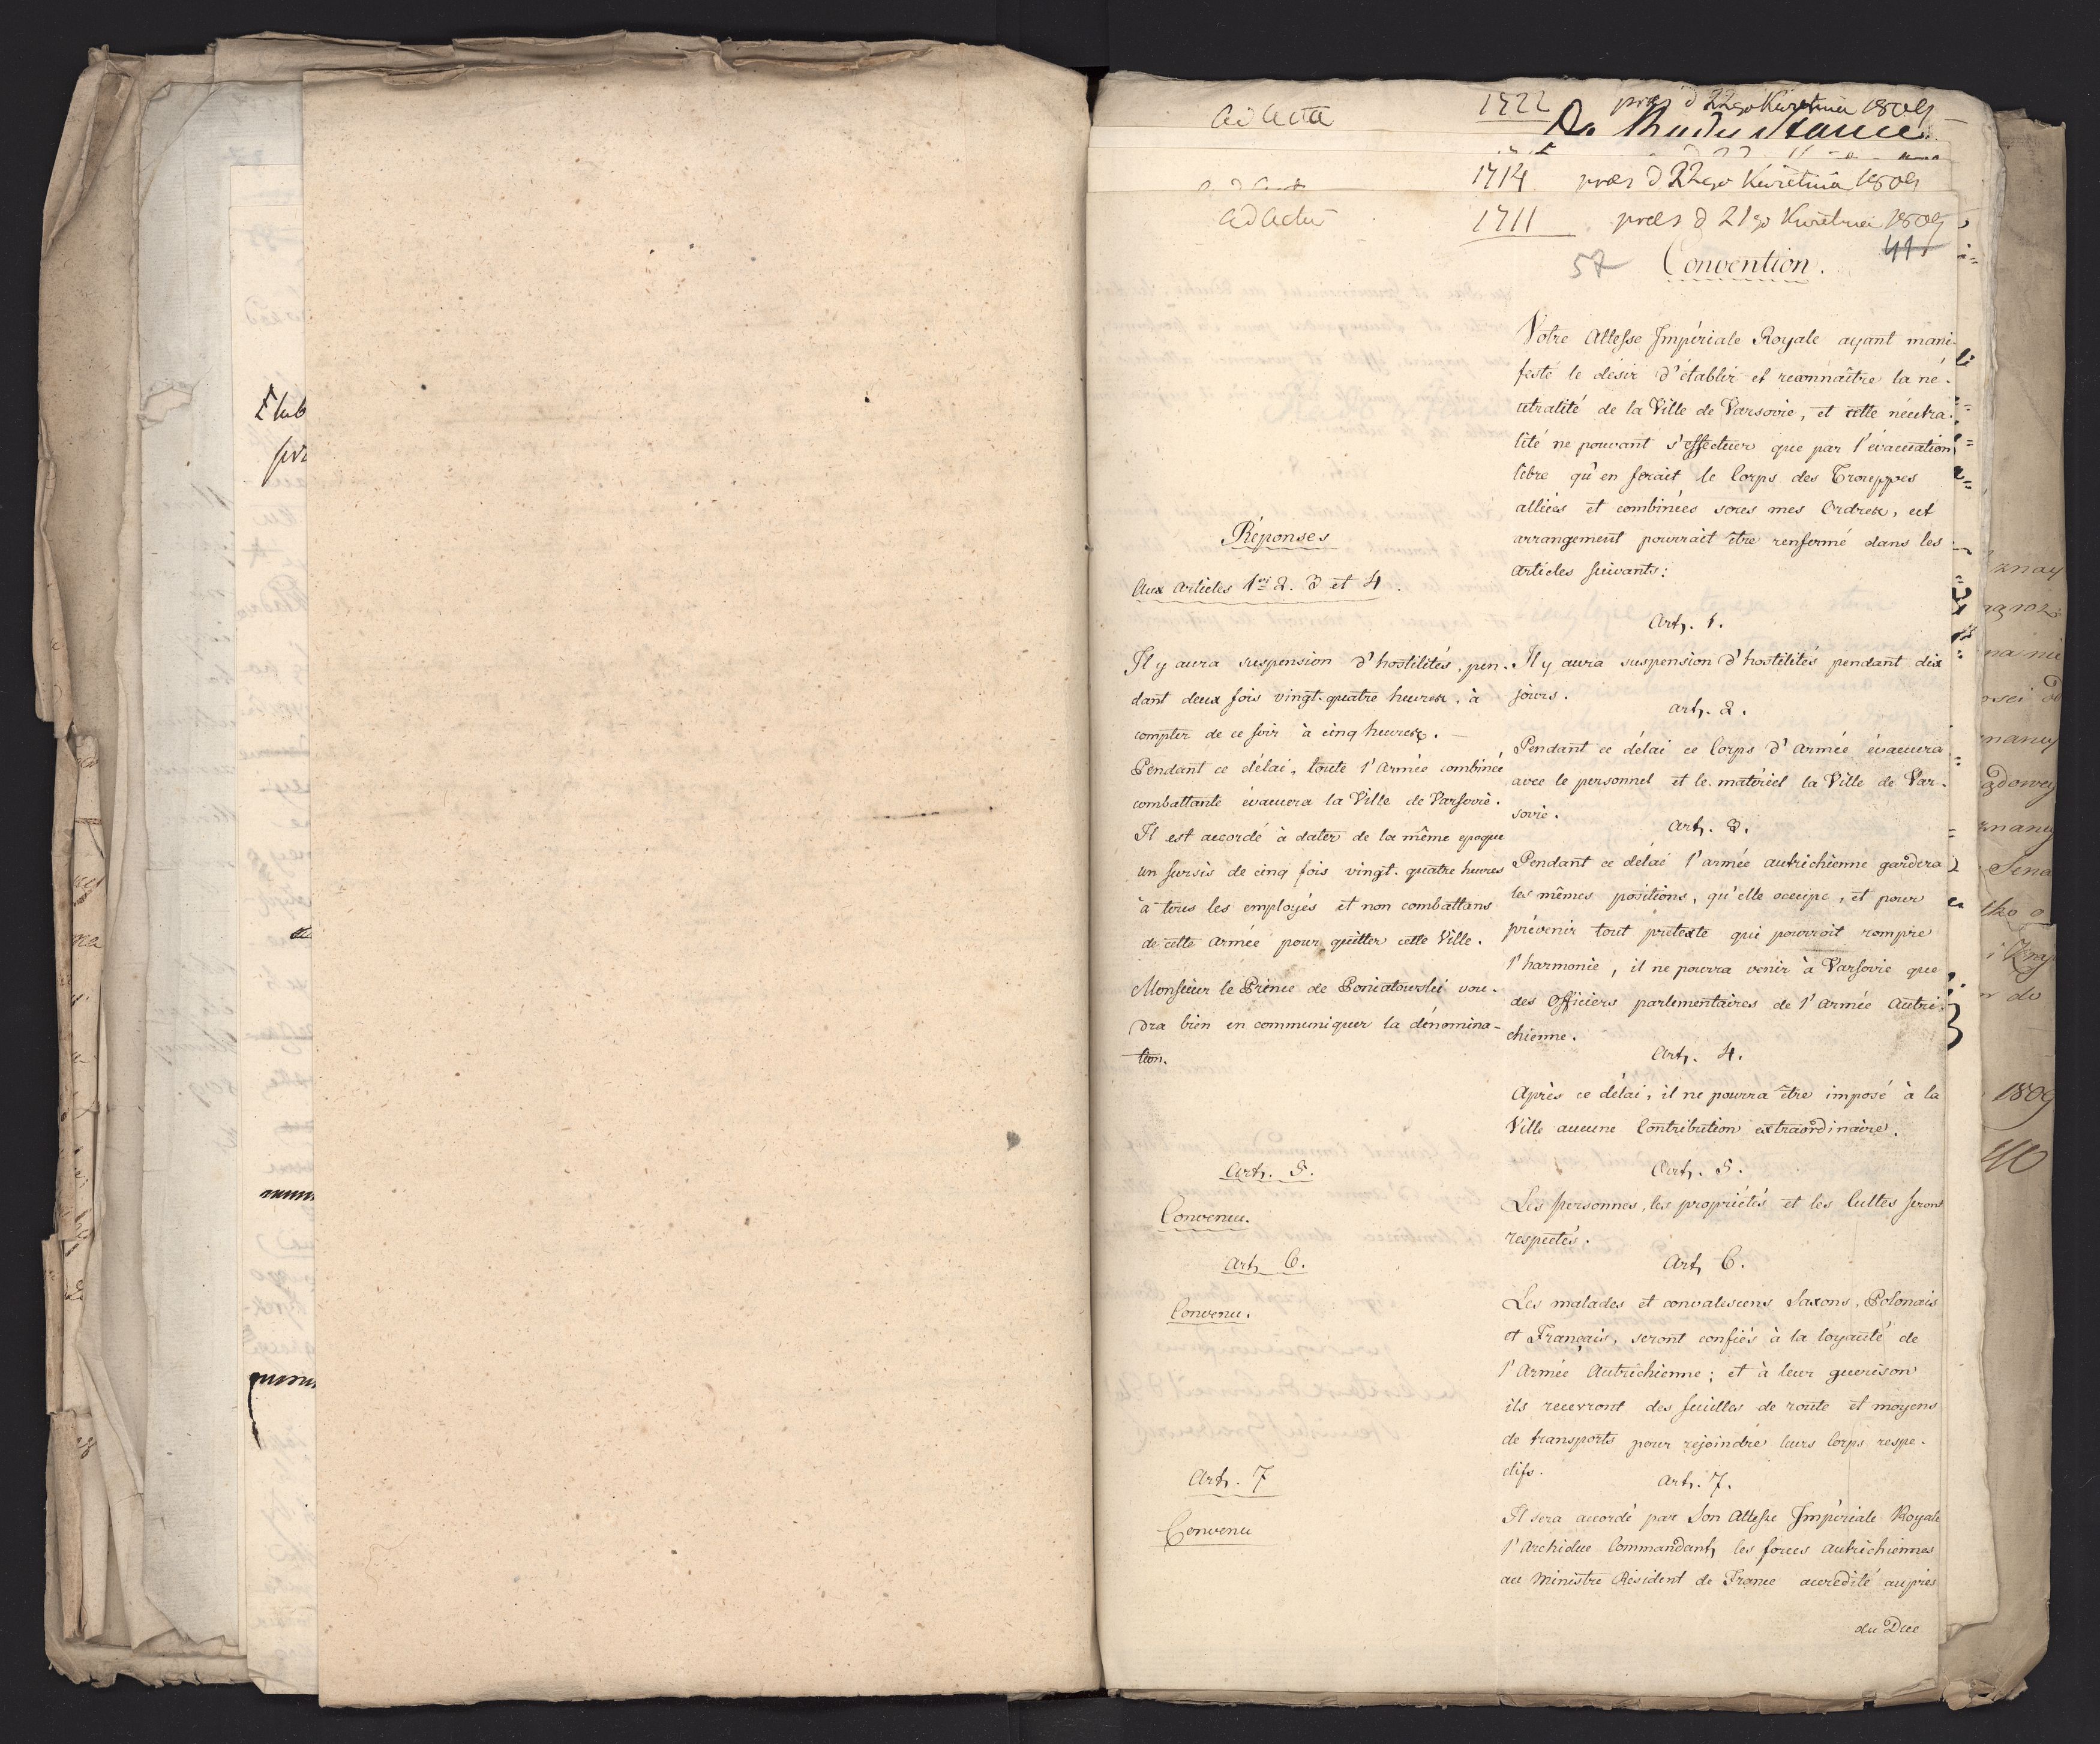 ad acta 1722 præs d 22go Kwietnia 1809
Do Rady Stanu
1714 præs d 22go Kwietnia 1809
ad acta 1711 præs d 21go Kwietnia 1809
41
57 Convention.
Votre Altesse Impériale Royale ayant mani-
festé le désir d'établir et reconnaître la né-
utralité de la Ville de Varsovie, et cette néutra-
lité ne pouvant s'effectuer que par l'évacuation
libre qu'en ferait le Corps des Trouppes
alliées et combinées sous mes Ordres, cet
arrangement pourrait être renfermé dans les
articles suivants:
Art. 1.
Il y aura suspension d'hostilités pendant dix
jours.
Art. 2.
Pendant ce délai ce Corps d'Armée évacuera
avec le personnel et le matériel la Ville de Var-
sovie.
Art. 3.
Pendant ce délai l'armée autrichienne gardera
les mêmes positions, qu'elle occupe, et pour
prévenir tout prétexte qui pourroit rompre
l'harmonie, il ne pourra venir à Varsovie que
des Officiers parlementaires de l'Armée Autri-
chienne.
Art. 4.
Après ce délai, il ne pourra être imposé à la
Ville aucune Contribution extraordinaire.
Art. 5.
Les personnes, les propriétés et les Cultes seront
respectés.
Art. 6.
Les malades et convalescens Saxons, Polonais
et Français, seront confiés à la loyauté de
l'Armée Autrichienne; et à leur guerison
ils recevront des feuilles de route et moyens
de transports pour rejoindre leurs Corps respe-
ctifs.
Art. 7.
Il sera accordé par Son Altesse Impériale Royale
l'Archiduc Commandant les forces Autrichiennes
au Ministre Résident de France accredité auprès
du Duc
Réponses
Aux Articles 1er 2. 3 et 4.
Il y aura suspension d'hostilités, pen-
dant deux fois vingt-quatre heures, à
compter de ce soir à cinq heures. —
Pendant ce délai, toute l'Armée combinée
combattante évacuera la Ville de Varsovie.
Il est accordé à dater de la même epoque
un sursis de cinq fois vingt-quatre heures
à tous les employés et non combattans
de cette Armée pour quitter cette Ville.
Monsieur le Prince de Poniatowski vou-
dra bien en communiquer la dénomina-
tion.
Art. 5.
Convenu.
Art. 6.
Convenu.
Art. 7
Convenu
1809
40